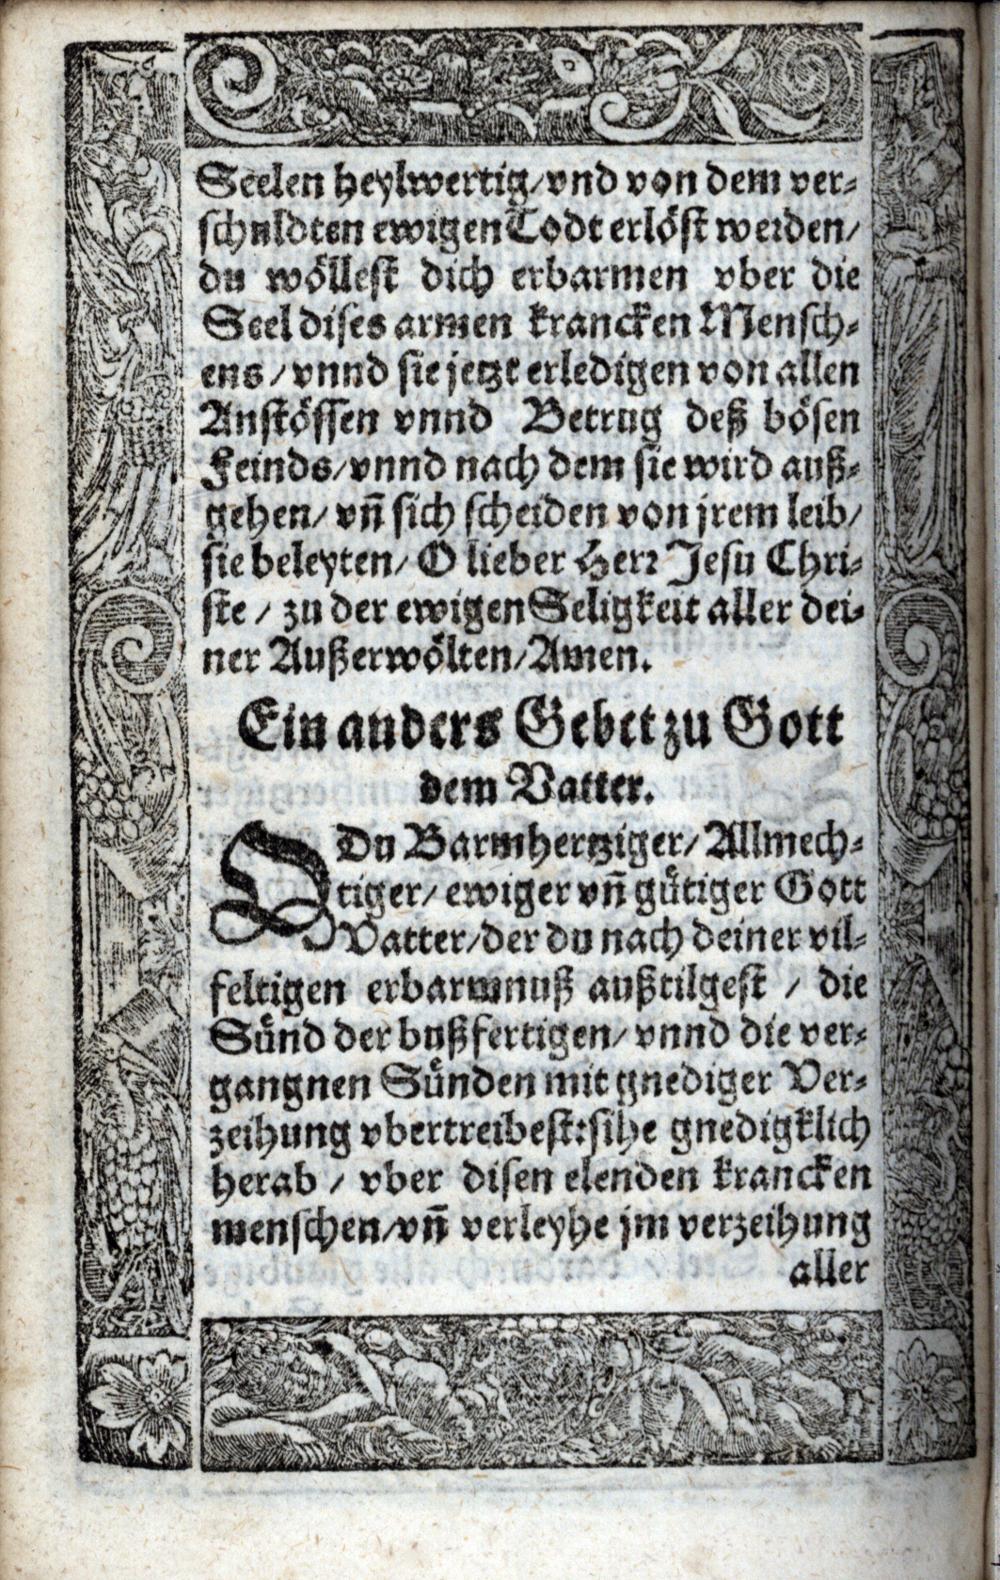 Seelen heylwertig/ vnd von dem ver⸗
schuldten ewigen Todt erlöst werden/
du wöllest dich erbarmen vber die
Seel dises armen krancken Mensch⸗
ens / vnnd sie jetzt erledigen von allen
Anstössen vnnd Betrug deß bösen
Feinds/ vnnd nach dem sie wird auß⸗
gehen/ vñ sich scheiden von jrem leib/
sie beleyten/ O lieber Herr Jesu Chri⸗
ste / zu der ewigen Seligkeit aller dei⸗
ner Außerwölten/ Amen.
Ein anders Gebet zu Gott
dem Vatter.
O Du Barmhertziger/ Allmech⸗
tiger/ ewiger vñ gütiger Gott
Vatter/ der du nach deiner vil⸗
feltigen erbarmnuß außtilgest / die
Sünd der bußfertigen/ vnnd die ver⸗
gangnen Sünden mit gnediger Ver⸗
zeihung vbertreibest: sihe gnedigklich
herab / vber disen elenden krancken
menschen/ vñ verleyhe jm verzeihung
aller